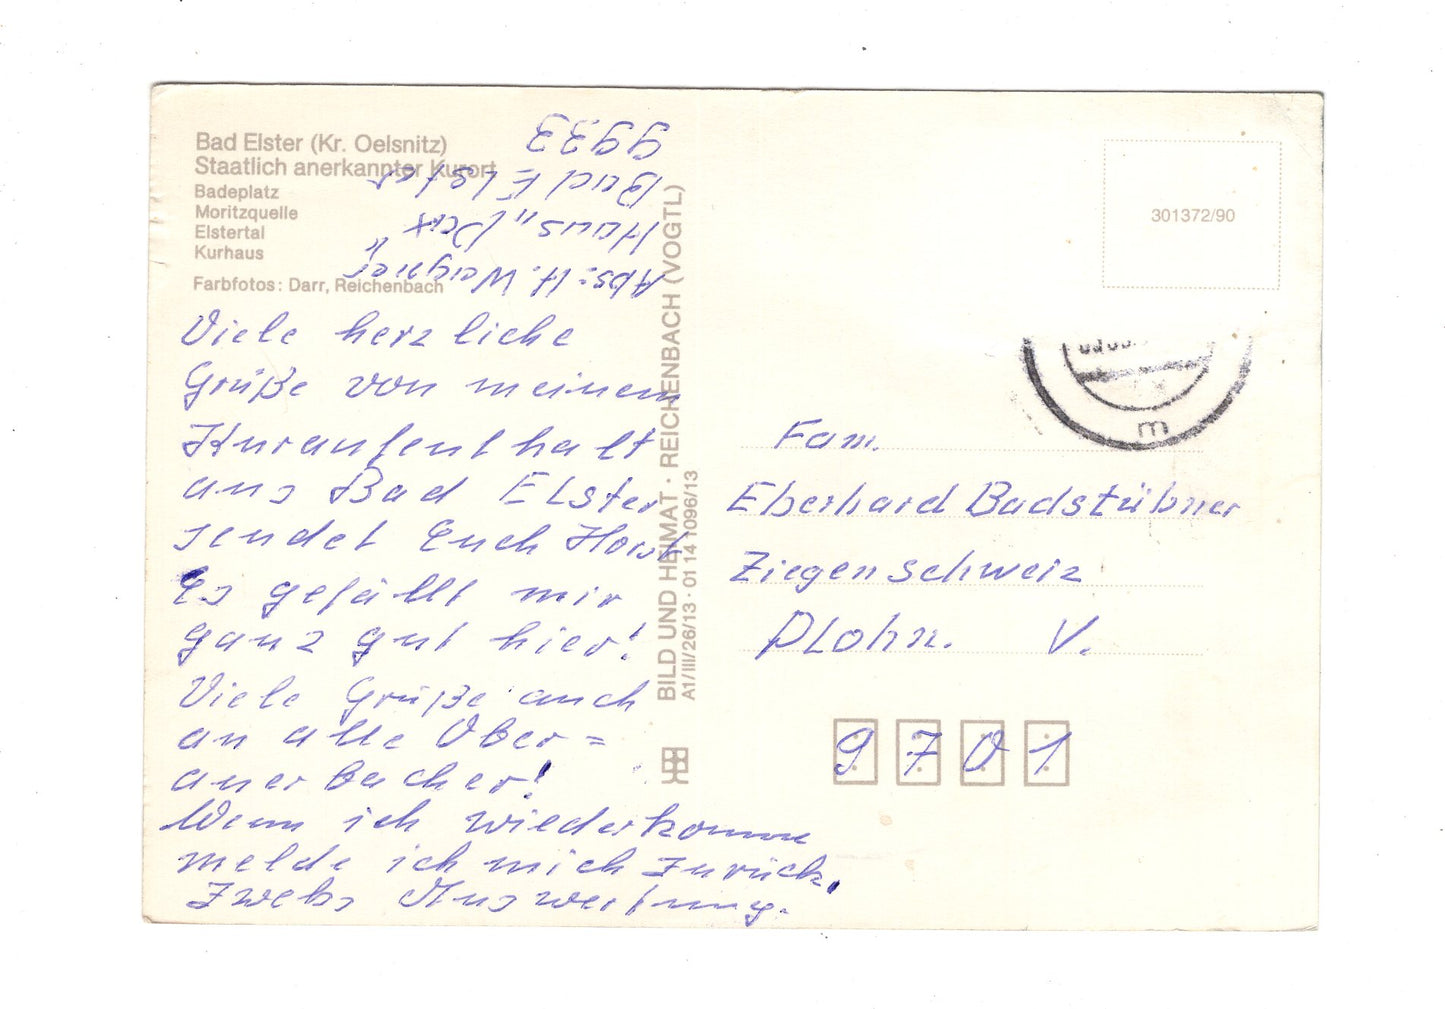 Bad Elster (Kr. Oelsnitz)
Staatlich anerkannter Kurort
Badeplatz
Moritzquelle
Elstertal
Kurhaus
Farbfotos: Darr, Reichenbach
Abs: H. Wagner
Haus „
Bad Elster
9933
Viele herzliche
Grüße von meinem
Kuraufenthalt
aus Bad Elster
sendet Euch Horst
Es gefällt mir
ganz gut hier!
Viele Grüße auch
an alle Ober=
auerbacher!
Wenn ich wiederkomme
melde ich mich zurück,
zwecks Auswertung.
BILD UND HEIMAT · REICHENBACH (VOGTL)
A1/III/26/13 · 01 14 1096/13
301372/90
m
Fam.
Eberhard Badstübner
Ziegenschweiz
Plohn. V.
9701